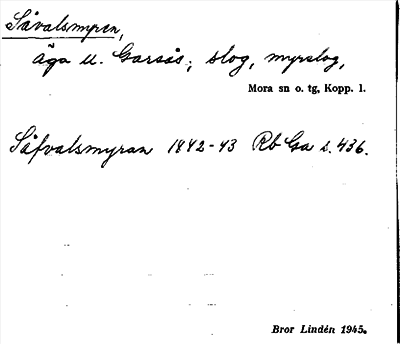 Såvalsmyren,
äga u. Garsås; slog, myrslog,
Mora sn o. tg, Kopp. l.
Säfvalsmyran 1842-43 Rb Ga s. 436.
Bror Lindén 1945.